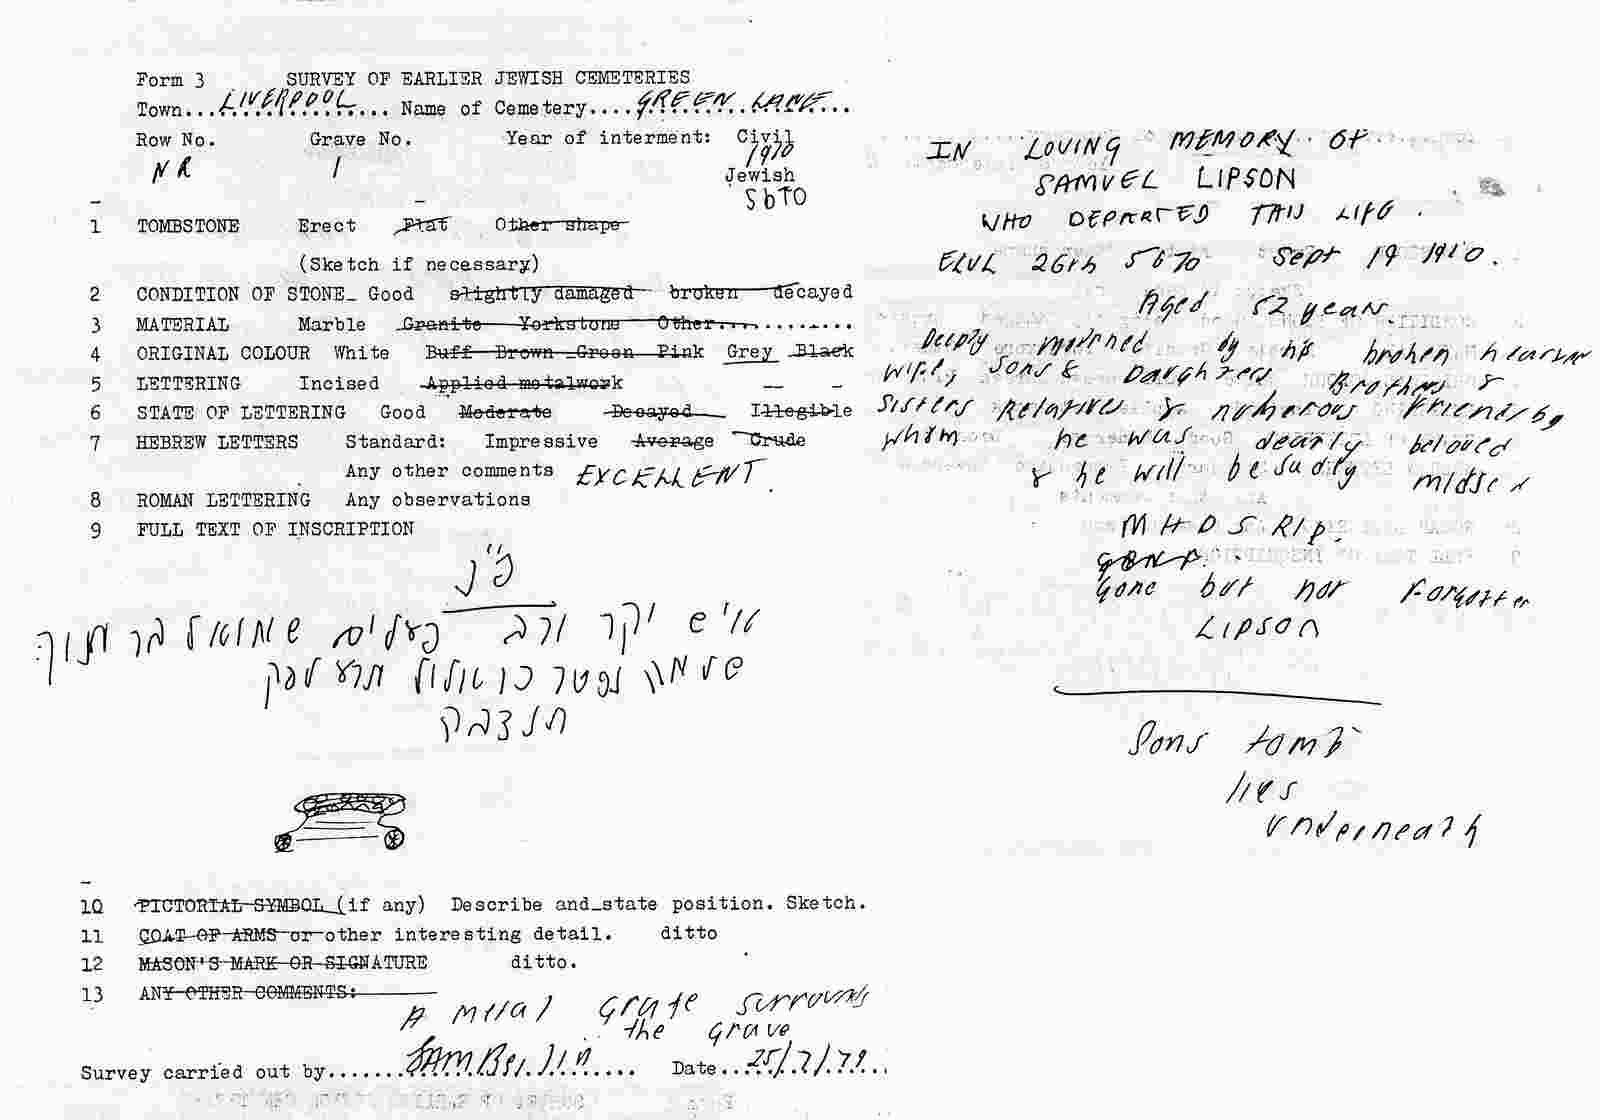 Form 3 SURVEY OF EARLIER JEWISH CEMETERIES
Town...LIVERPOOL... Name of Cemetery....GREEN LANE...
Row No. Grave No. Year of interment: Civil
1910
NR 1 Jewish
5670
1 TOMBSTONE Erect Flat Other shape
(Sketch if necessary)
2 CONDITION OF STONE Good slightly damaged broken decayed
3 MATERIAL Marble Granite Yorkstone Other............
4 ORIGINAL COLOUR White Buff Brown Green Pink Grey Black
5 LETTERING Incised Applied metalwork
6 STATE OF LETTERING Good Moderate Decayed Illegible
7 HEBREW LETTERS Standard: Impressive Average Crude
Any other comments EXCELLENT.
8 ROMAN LETTERING Any observations
9 FULL TEXT OF INSCRIPTION
פ"נ
איש יקר ורב פעלים שמואל בר
שלמה נפטר כו אלול תרע לפק
תנצבה
10 PICTORIAL SYMBOL (if any) Describe and state position. Sketch.
11 COAT OF ARMS or other interesting detail. ditto
12 MASON'S MARK OR SIGNATURE ditto.
13 ANY OTHER COMMENTS:
A metal Grate surrounds
the grave
Survey carried out by.......SAM Berlin....... Date...25/7/79...
IN LOVING MEMORY OF
SAMUEL LIPSON
WHO DEPARTED THIS LIFE.
ELUL 26th 5670 Sept 19 1910.
Aged 52 years.
Deeply mourned by his broken hearted
wife, Sons & Daughters Brothers &
Sisters Relatives & numerous Friends by
whom he was dearly beloved
& he will be sadly missed
M H D S RIP.
Gone but not Forgotten
LIPSON
Sons tomb
lies
underneath